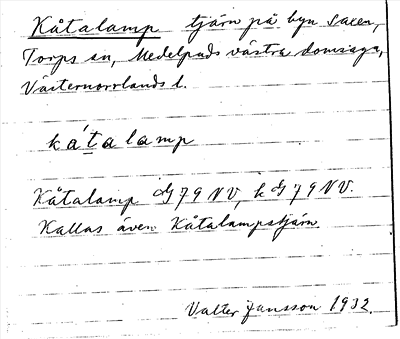 Kåtalamp tjärn på byn Saxen,
Torps sn, Medelpads västra domsaga,
Västernorrlands l.
kátalamp
Kåtalamp G79NV, k G79NV.
Kallas även Kåtalampstjärn
Valter Jansson 1932.